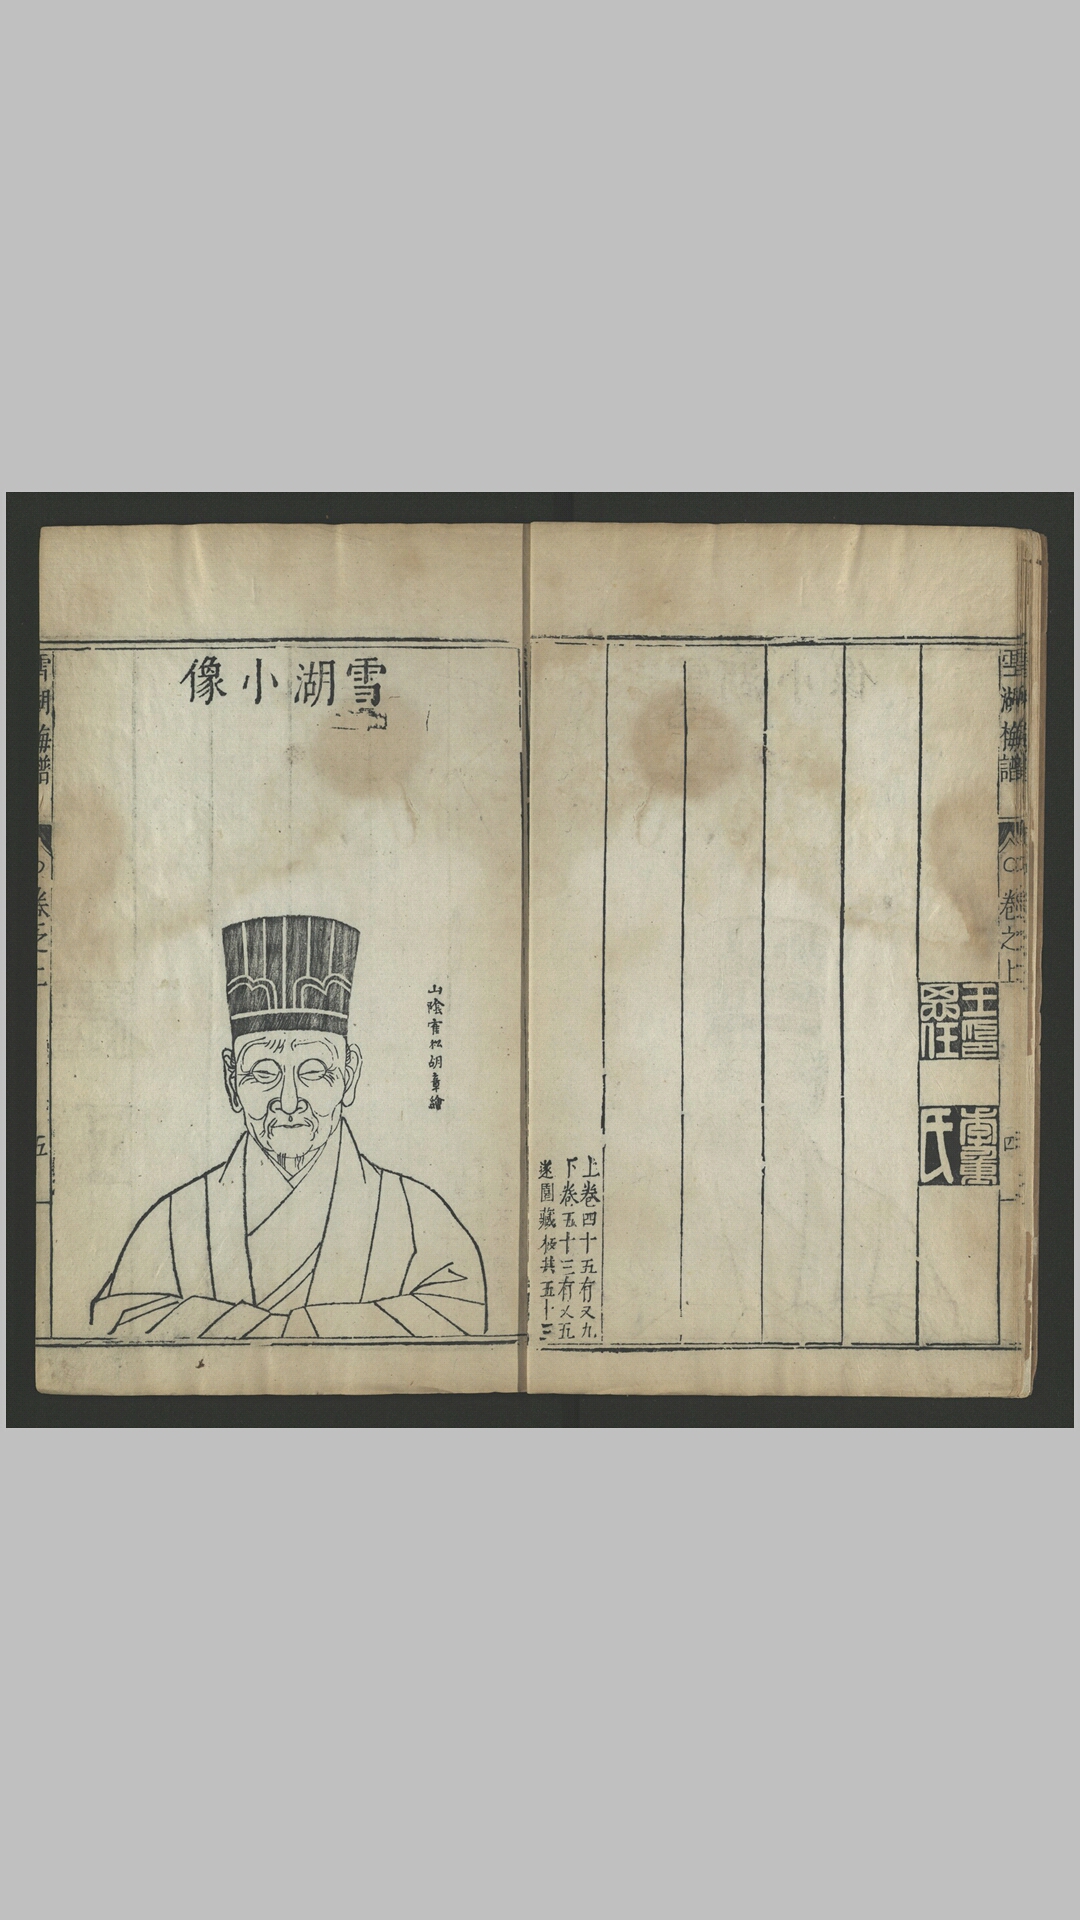 雪湖梅譜
卷之上
四
上卷四十五有又九
下卷五十三有又五
遂園藏板共五十三
雪湖小像
山陰胡章繪
雪湖梅譜
卷之上
五